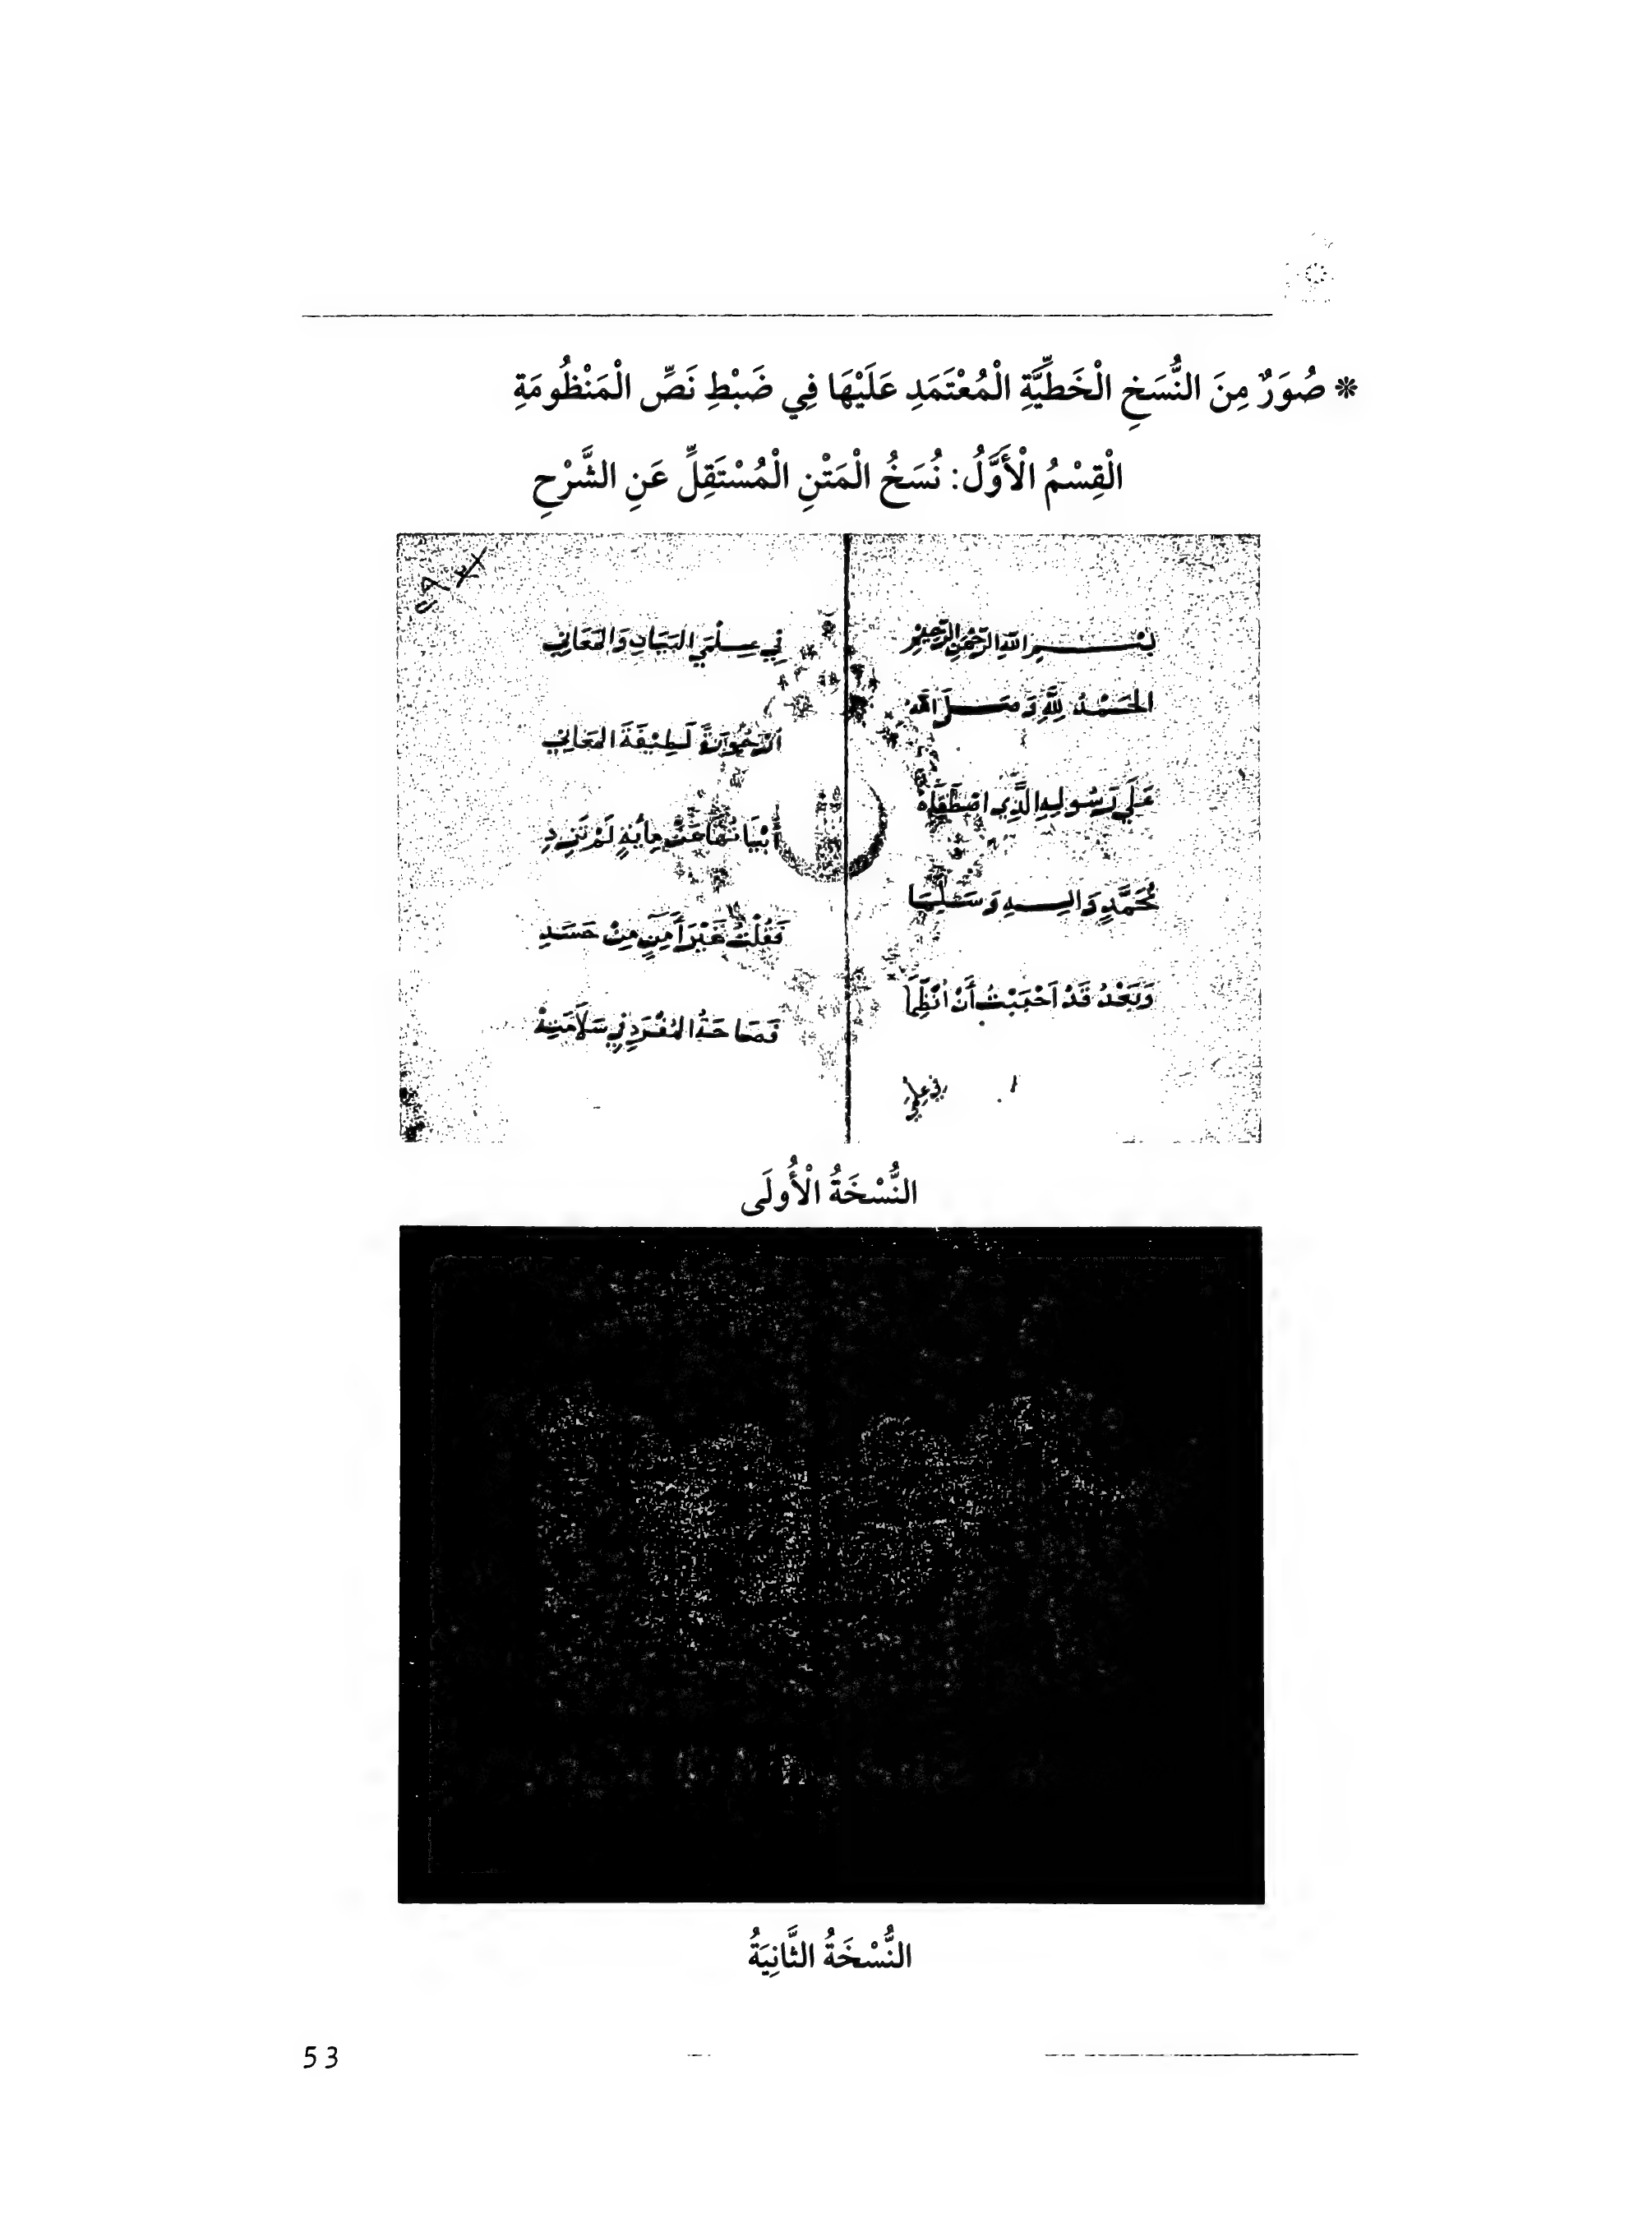 * صُوَرٌ مِنَ النُّسَخِ الْخَطِّيَّةِ الْمُعْتَمَدِ عَلَيْهَا فِي ضَبْطِ نَصِّ الْمَنْظُومَةِ
الْقِسْمُ الْأَوَّلُ: نُسَخُ الْمَتْنِ الْمُسْتَقِلِّ عَنِ الشَّرْحِ
بسم الله الرحمن الرحيم
الحَمْدُ لِلَّهِ وَصَلَّى الله
عَلَى رَسُولِهِ الَّذِي اصْطَفَاهُ
مُحَمَّدٍ وَالِهِ وَسَلَّمَا
وَبَعْدُ قَدْ اَحْبَبْتُ أَنْ اَنْظِمَا
في علمي
فِي عِلْمَيِ البَيَانِ وَالمَعَانِي
اُرْجُوزَةً لَطِيفَةَ المَعَانِي
أَبْيَاتُهَا عَنْ مِائَةٍ لَمْ تَزِدِ
فَقُلْتُ غَيْرَ أَمِنٍ مِنْ حَسَدِ
فَصَاحَةُ المُفْرَدِ فِي سَلَامَتِهْ
النُّسْخَةُ الْأُولَى
النُّسْخَةُ الثَّانِيَةُ
53